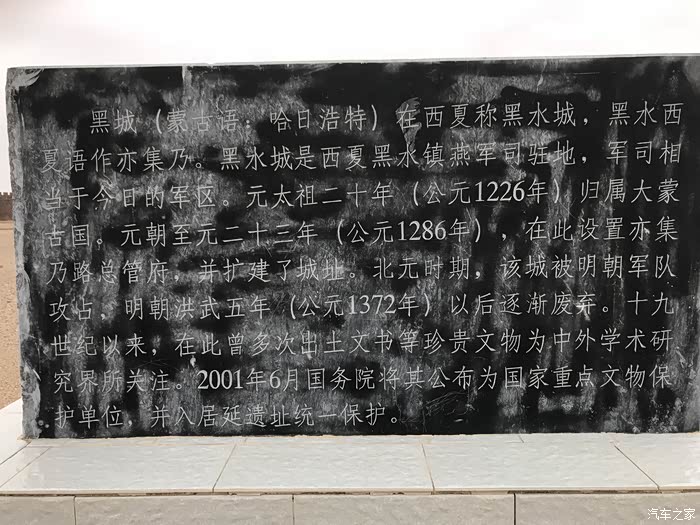 黑城（蒙古语：哈日浩特）在西夏称黑水城，黑水西
夏语作亦集乃。黑水城是西夏黑水镇燕军司驻地，军司相
当于今日的军区。元太祖二十年（公元1226年）归属大蒙
古国。元朝至元二十三年（公元1286年），在此设置亦集
乃路总管府，并扩建了城址。北元时期，该城被明朝军队
攻占，明朝洪武五年（公元1372年）以后逐渐废弃。十九
世纪以来，在此曾多次出土文书等珍贵文物为中外学术研
究界所关注。2001年6月国务院将其公布为国家重点文物保
护单位，并入居延遗址统一保护。
汽车之家